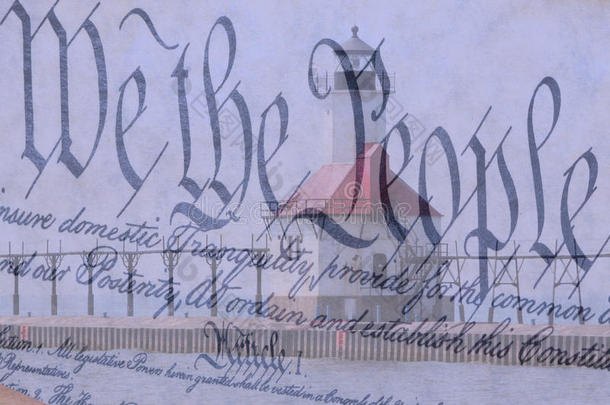 We the People
insure domestic Tranquility, provide for the common d
and our Posterity, do ordain and establish this Constitu
Article. 1.
ction. 1. All legislative Powers herein granted shall be vested in a Congress of
Representatives.
ction. 2. The